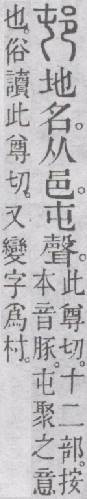 邨地名。从邑。屯聲。
此尊切。十二部。按
本音豚。屯聚之意
也。俗讀此尊切。又變字爲村。